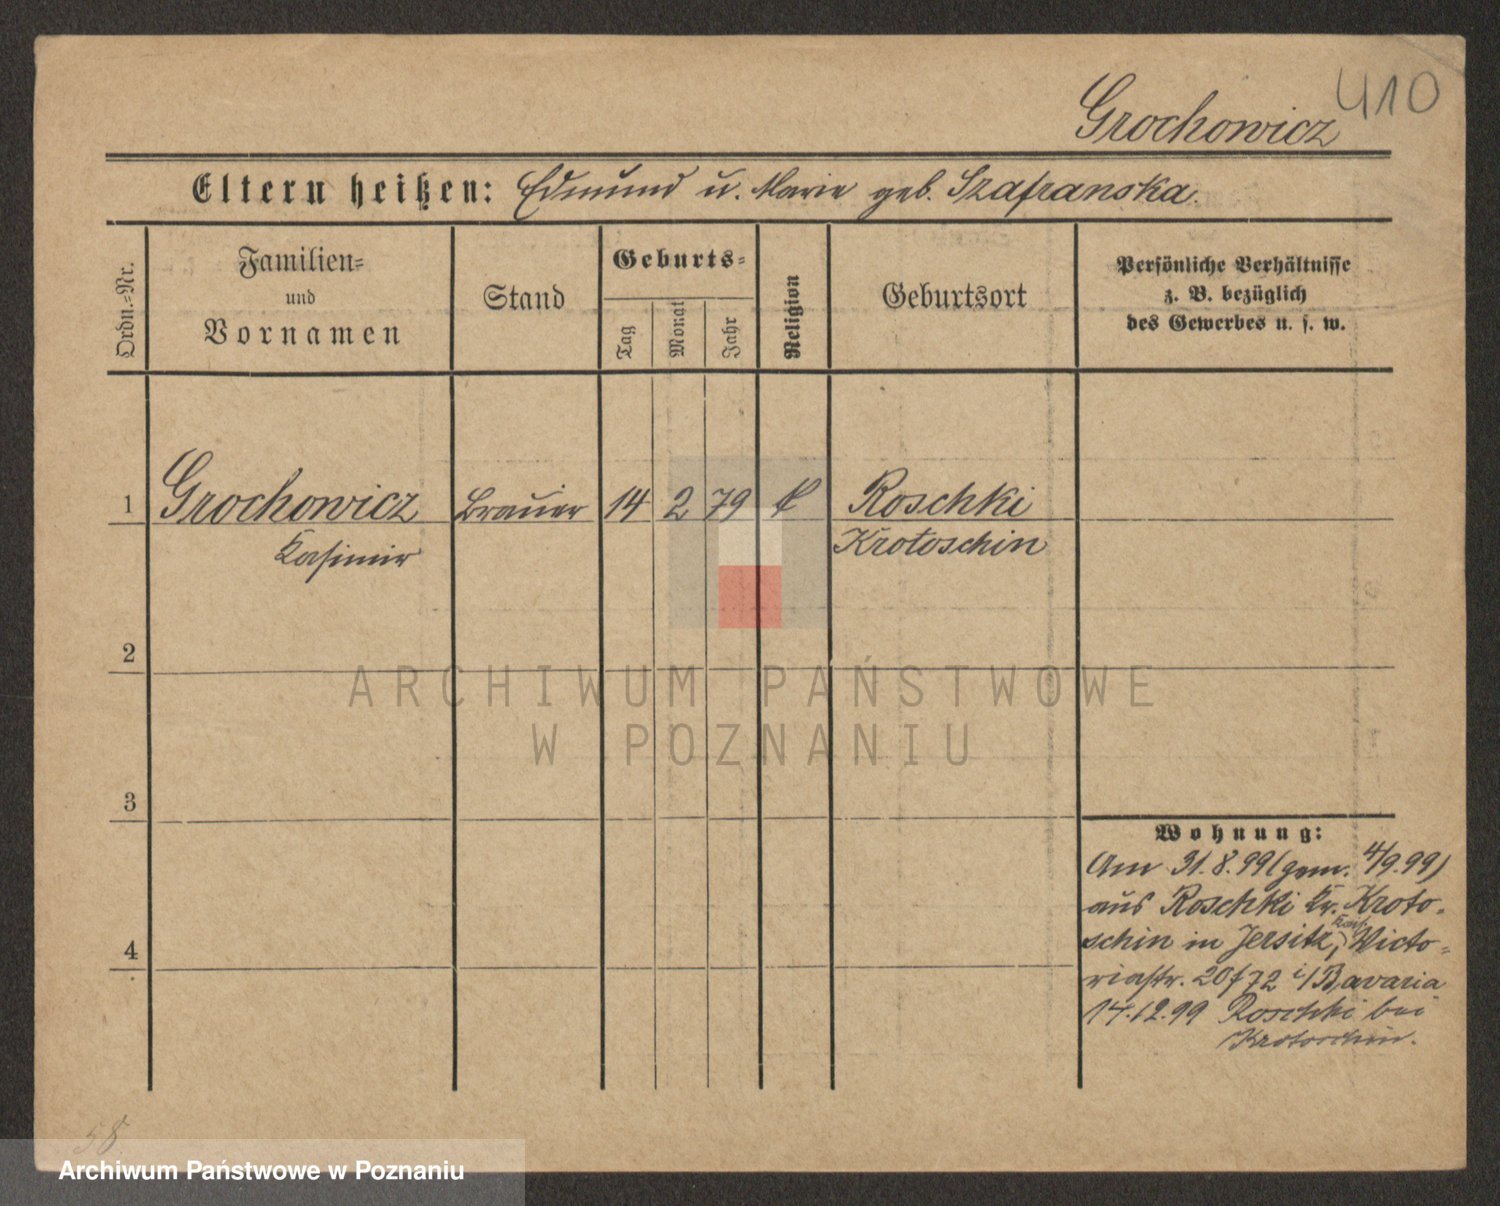 410
Grochowicz
Eltern heißen: Edmund u. Marie geb. Szafranska.
Ordn.-Nr.
Familien-
und
Vornamen
Stand
Geburts-
Tag
Monat
Jahr
Religion
Geburtsort
Persönliche Verhältnisse
z. B. bezüglich
des Gewerbes u. s. w.
1 Grochowicz Brauer 14 2 79 k Roschki
Kasimir Krotoschin
2
3
4
Wohnung:
Am 31.8.99 (gem. 4/9.99)
aus Roschki Kr. Kroto-
schin in Jersitz, Victo-
riastr. 20/72 i/Bavaria
14.12.99 Roschki bei
Krotoschin.
58
ARCHIWUM PAŃSTWOWE
W POZNANIU
Archiwum Państwowe w Poznaniu